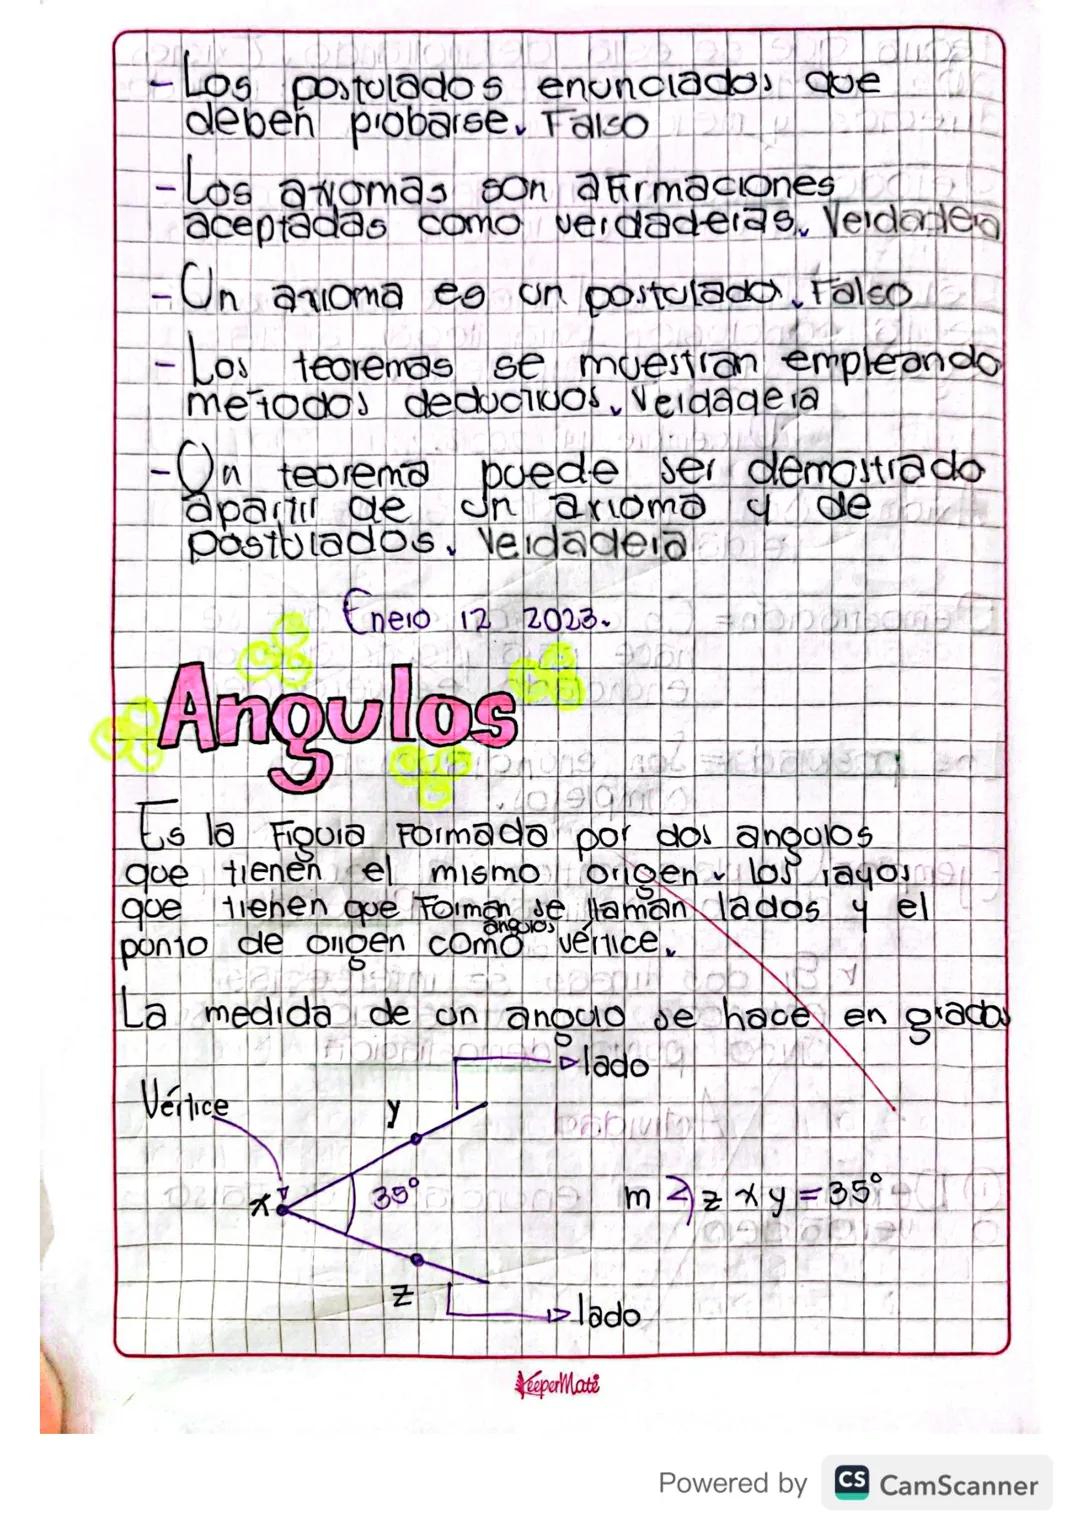 - Los postulados enunciados que
deben probarse. Falso
- Los axiomas son afirmaciones
aceptadas como verdaderas. Verdadera
- Un axioma es un postulado. Falso
- Los teoremas se muestran empleando
metodos deductivos. Verdadera
- Un teorema puede ser demostrado
apartir de un axioma y de
postulados. Verdadera
Enero 12 2023.
Angulos
Es la Figura Formada por dos angulos
que tienen el mismo origen. los rayos
que tienen que Forman se llaman lados y el
angulos
punto de origen como vértice.
La medida de un angulo se hace en grados
lado
Vértice
y
x
35°
m ∡ z x y = 35°
z
lado
KeeperMate
Powered by CS CamScanner